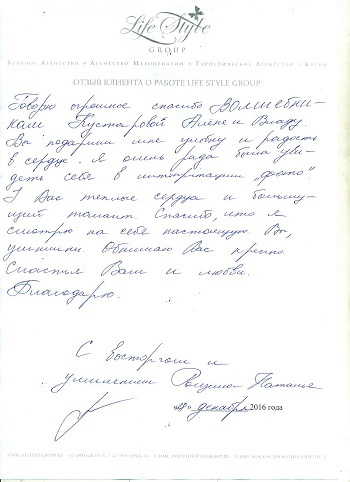 Life Style
GROUP
Брачное Агентство • Агентство Мероприятий • Туристическое Агентство •
ОТЗЫВ КЛИЕНТА О РАБОТЕ LIFE STYLE GROUP
Говорю огромное спасибо ВОЛШЕБНИ-
кам Кустаровой Алёне и Владу.
Вы подарили мне улыбку и радость
в сердце. Я очень рада была уви-
деть себя в интерпретации „фото“.
У Вас теплые сердца и
талант. Спасибо, что я
смотрю на себя настоящую. Вы,
умнички. Обнимаю Вас крепко.
Счастья Вам и любви.
Благодарю.
С восторгом и
умилением Наталья
декабря 2016 года